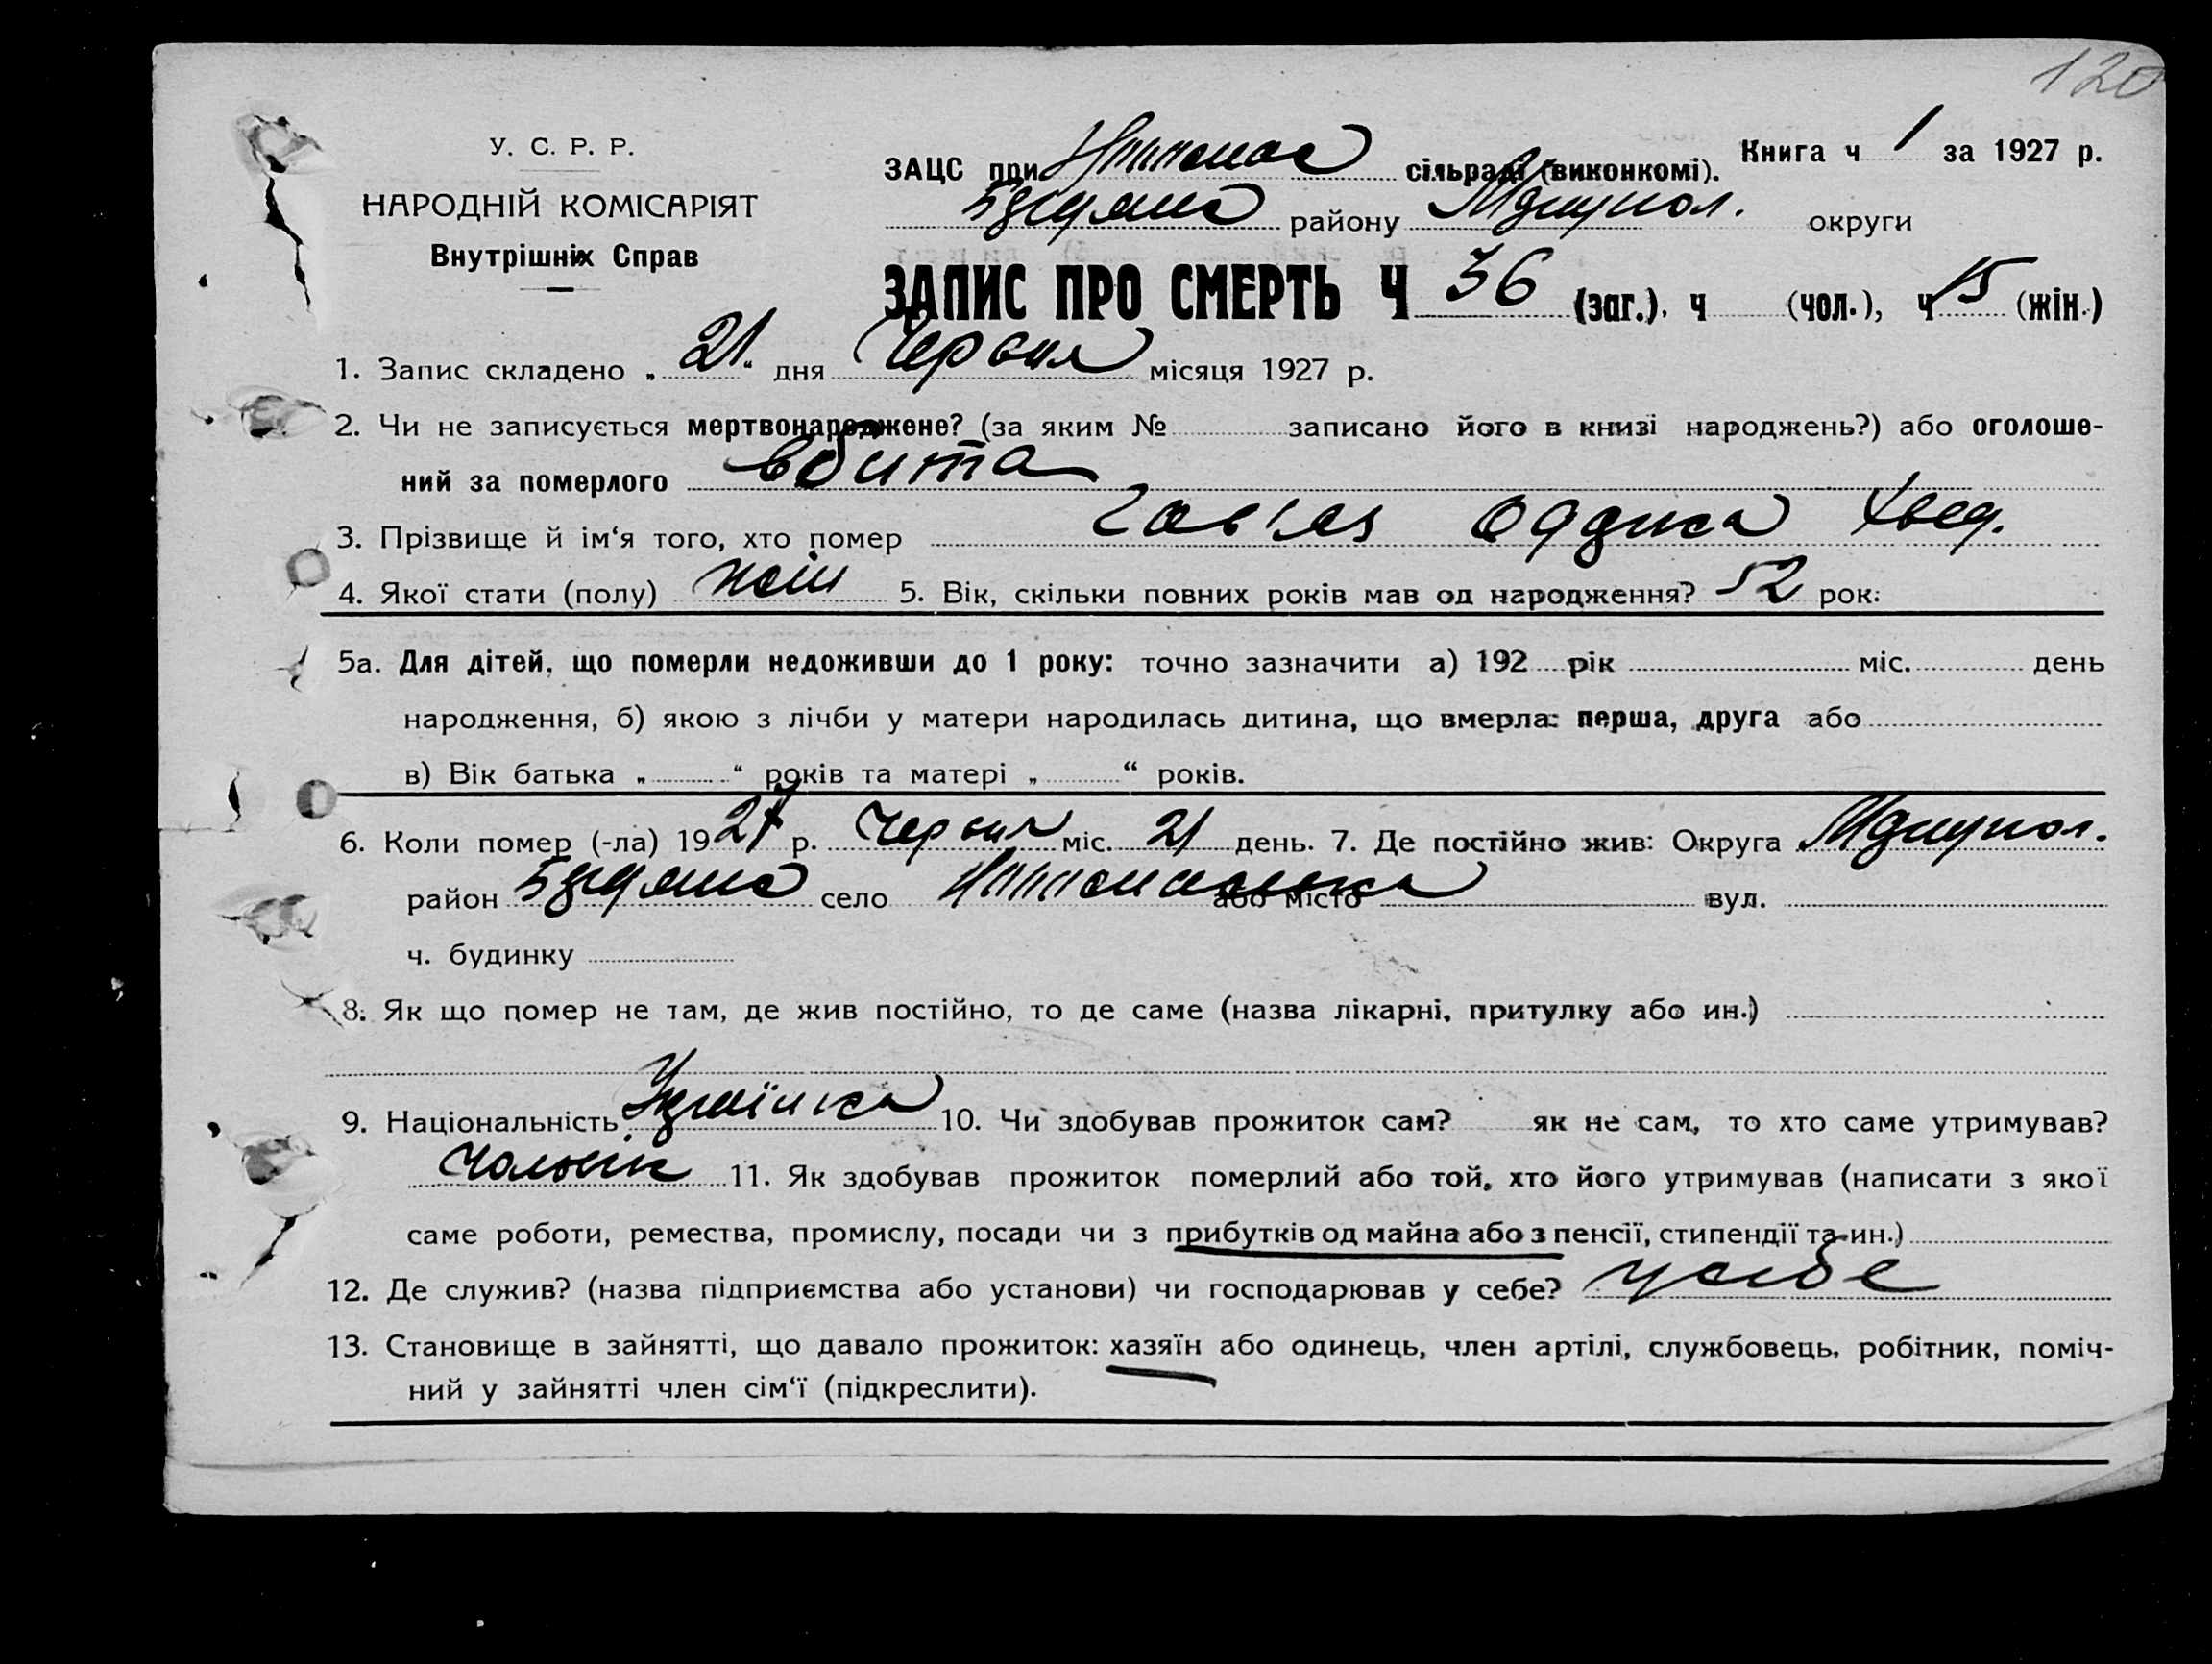 120
У. С. Р. Р.
НАРОДНІЙ КОМІСАРІЯТ
Внутрішніх Справ
ЗАЦС при сільраді (виконкомі). Книга ч 1 за 1927 р.
району округи
ЗАПИС ПРО СМЕРТЬ Ч 36 (заг.). ч (чол.), ч 15 (жін.)
1. Запис складено „21“ дня Червня місяця 1927 р.
2. Чи не записується мертвонароджене? (за яким № записано його в книзі народжень?) або оголоше-
ний за померлого вбита
3. Прізвище й ім‘я того, хто помер
4. Якої стати (полу) 5. Вік, скільки повних років мав од народження? 52 рок.
5а. Для дітей, що померли недоживши до 1 року: точно зазначити а) 192 рік міс. день
народження, б) якою з лічби у матери народилась дитина, що вмерла: перша, друга або
в) Вік батька „ “ років та матері „ “ років.
6. Коли помер (-ла) 1927 р. Червня міс. 21 день. 7. Де постійно жив: Округа
район село або місто вул.
ч. будинку
8. Як що помер не там, де жив постійно, то де саме (назва лікарні, притулку або ин.)
9. Національність Українка 10. Чи здобував прожиток сам? як не сам, то хто саме утримував?
Чоловік 11. Як здобував прожиток померлий або той, хто його утримував (написати з якої
саме роботи, ремества, промислу, посади чи з прибутків од майна або з пенсії, стипендії та ин.)
12. Де служив? (назва підприємства або установи) чи господарював у себе? у себе
13. Становище в зайнятті, що давало прожиток: хазяїн або одинець, член артілі, службовець, робітник, поміч-
ний у зайнятті член сім‘ї (підкреслити).